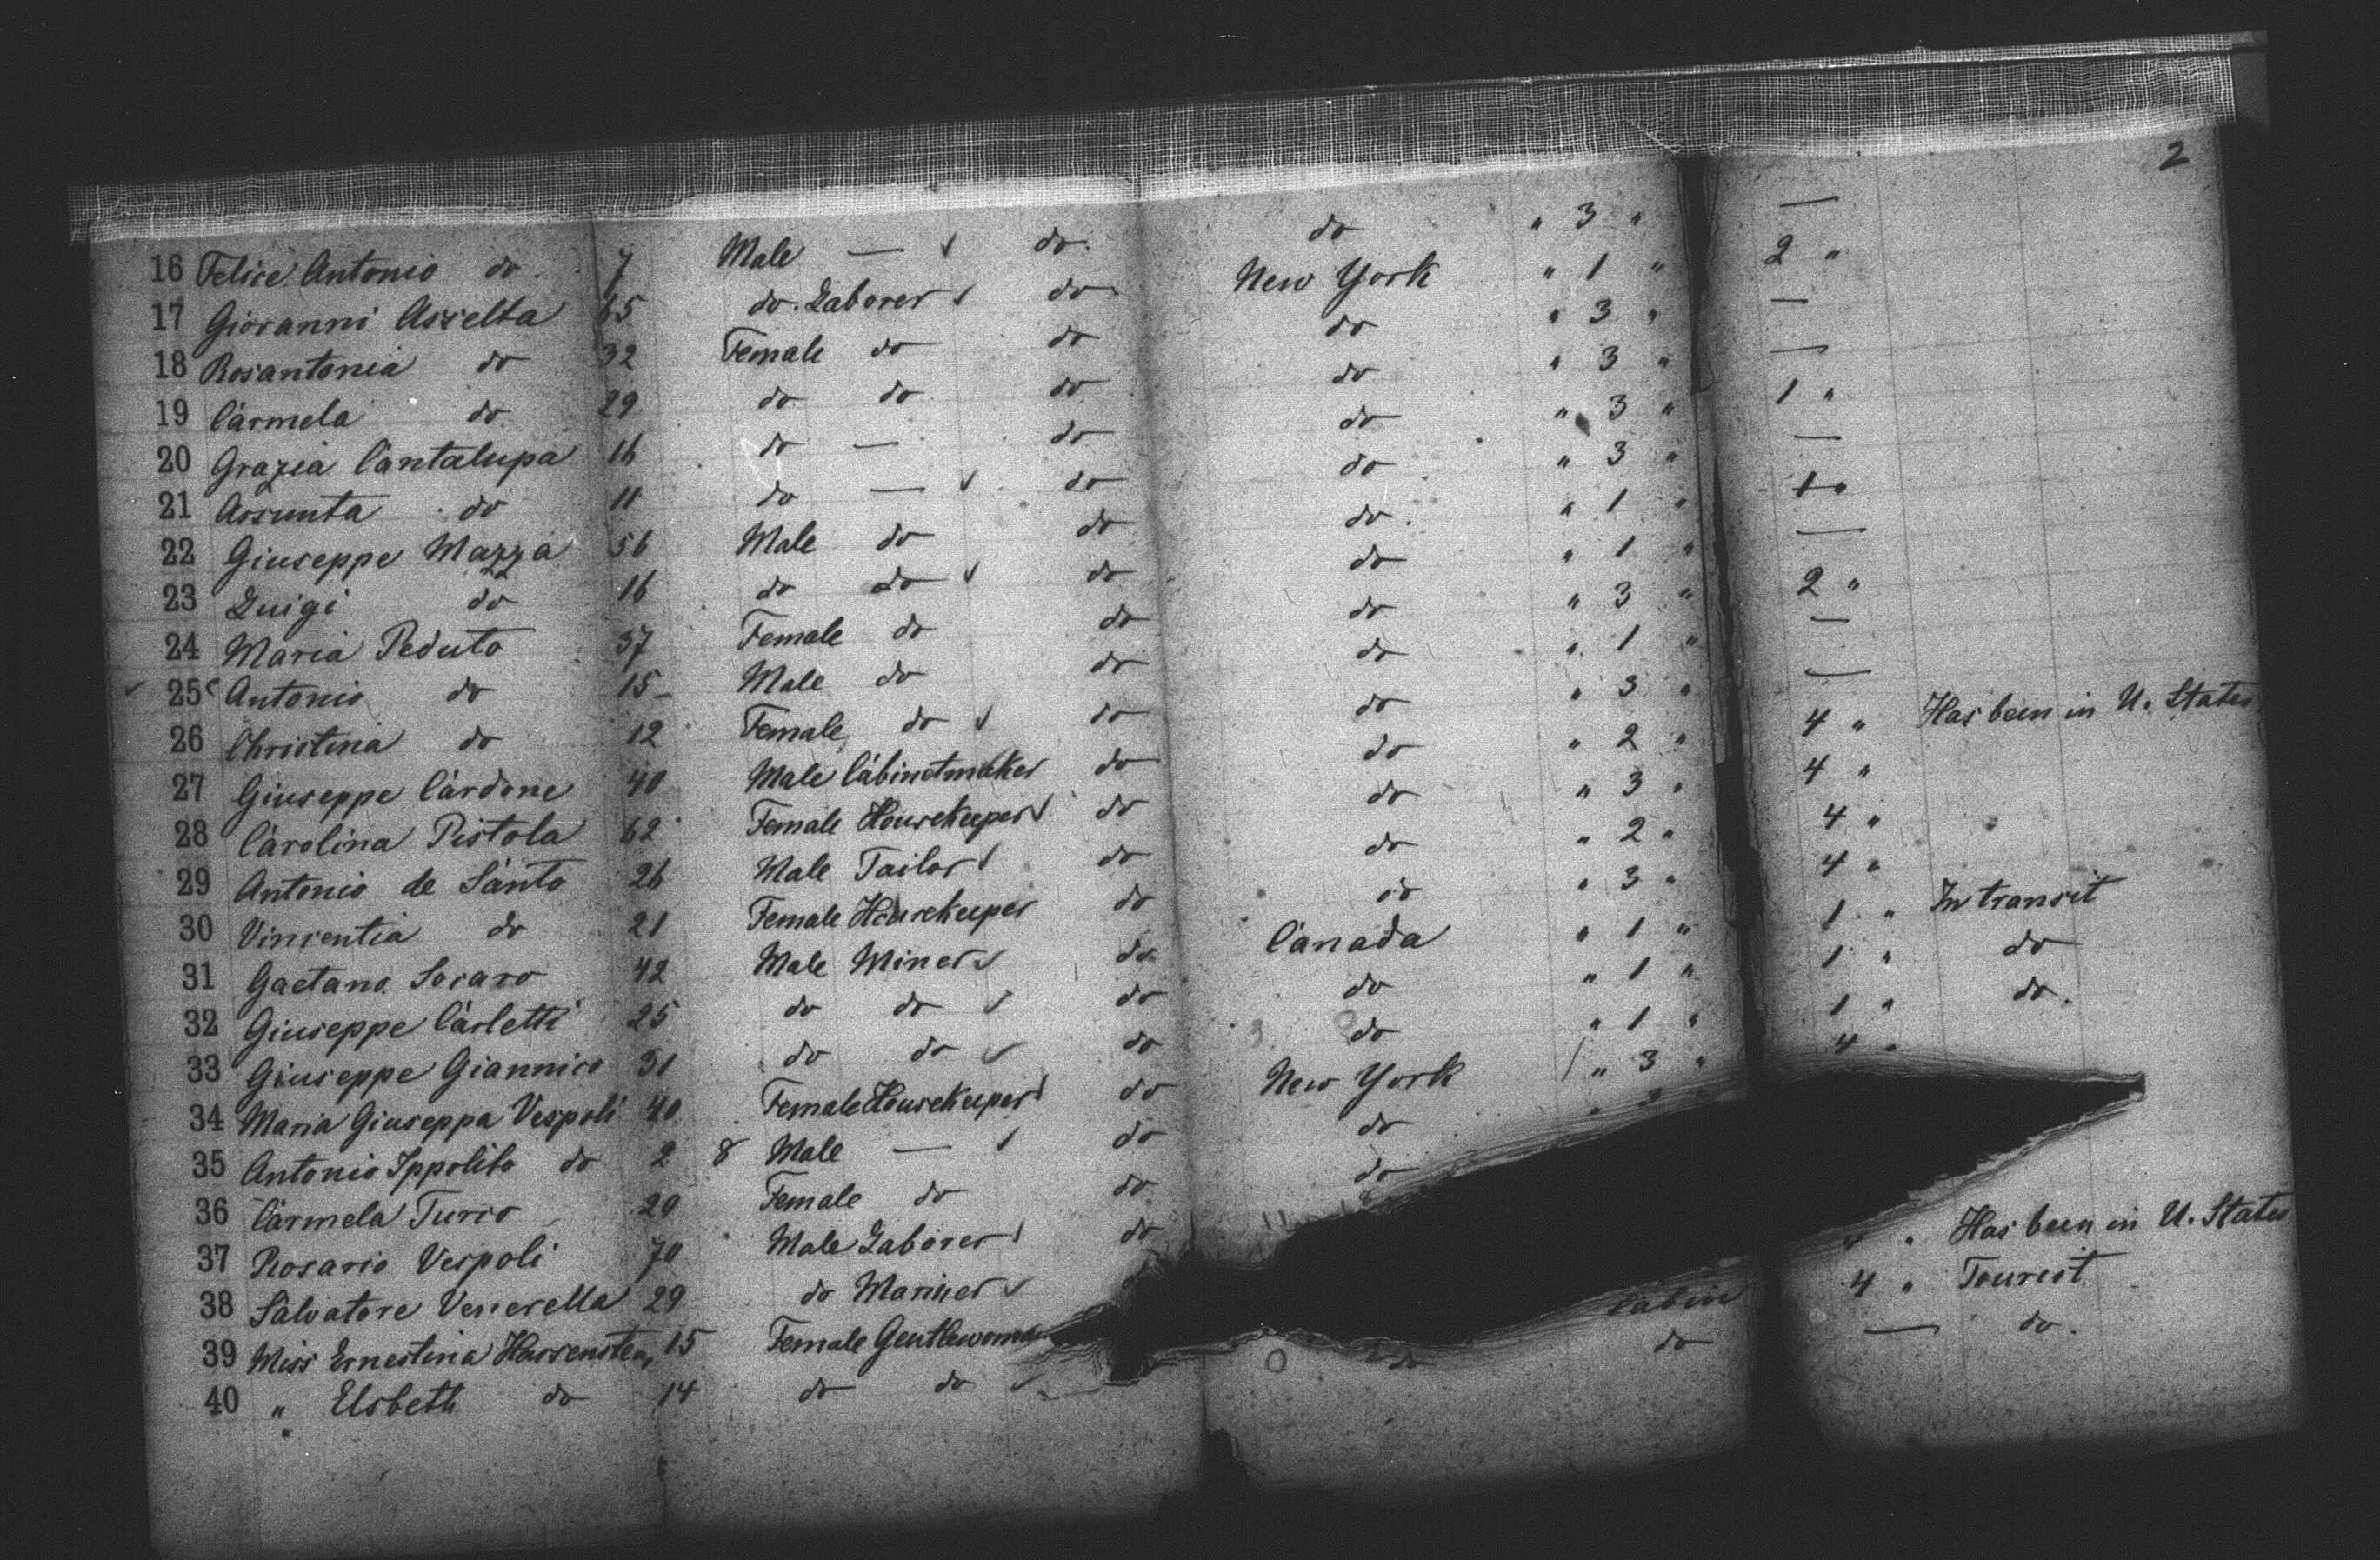 2
16 Felice Antonio do 7 Male — ✓ do do " 3 " —
17 Giovanni Asselta 65 do. Laborer ✓ do New York " 1 " 2 "
18 Rosantonia do 32 Female do do do " 3 " —
19 Carmela do 29 do do do do " 3 " —
20 Grazia Cantalupa 16 do — do do " 3 " 1 "
21 Assunta do 11 do — ✓ do do " 3 " —
22 Giuseppe Mazza 56 Male do do do " 1 " 1 "
23 Luigi do 16 do do ✓ do do " 1 " —
24 Maria Peduto 37 Female do do do " 3 " 2 "
25 Antonio do 15 Male do do do " 1 " —
26 Christina do 12 Female do ✓ do do " 3 " —
27 Giuseppe Cardone 40 Male Cabinetmaker do do " 2 " 4 " Has been in U. States
28 Carolina Pistola 62 Female Housekeeper ✓ do do " 3 " 4 "
29 Antonio de Santo 26 Male Tailor ✓ do do " 2 " 4 "
30 Vincentia do 21 Female Housekeeper do do " 3 " 4 "
31 Gaetano Socaro 42 Male Miner ✓ do Canada " 1 " 1 " In transit
32 Giuseppe Carletti 25 do do ✓ do do " 1 " 1 " do
33 Giuseppe Giannico 31 do do ✓ do do " 1 " 1 " do.
34 Maria Giuseppa Vespoli 40 Female Housekeeper ✓ do New York " 3 " 4 "
35 Antonio Ippolito do 2 8 Male — ✓ do do
36 Carmela Turco 20 Female do do do
37 Rosario Vespoli 70 Male Laborer ✓ do
38 Salvatore Venerella 29 do Mariner ✓ 4 " Has been in U. States
39 Miss Ernestina Hassenstein 15 Female Gentlewoman Cabin 4 " Tourist
40 " Elsbeth do 14 do do ✓ do do — do.